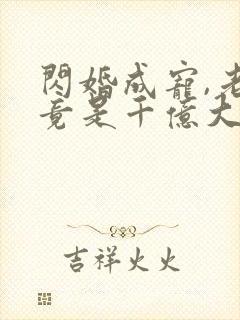 閃婚成寵,老
竟是千億大
吉祥火火